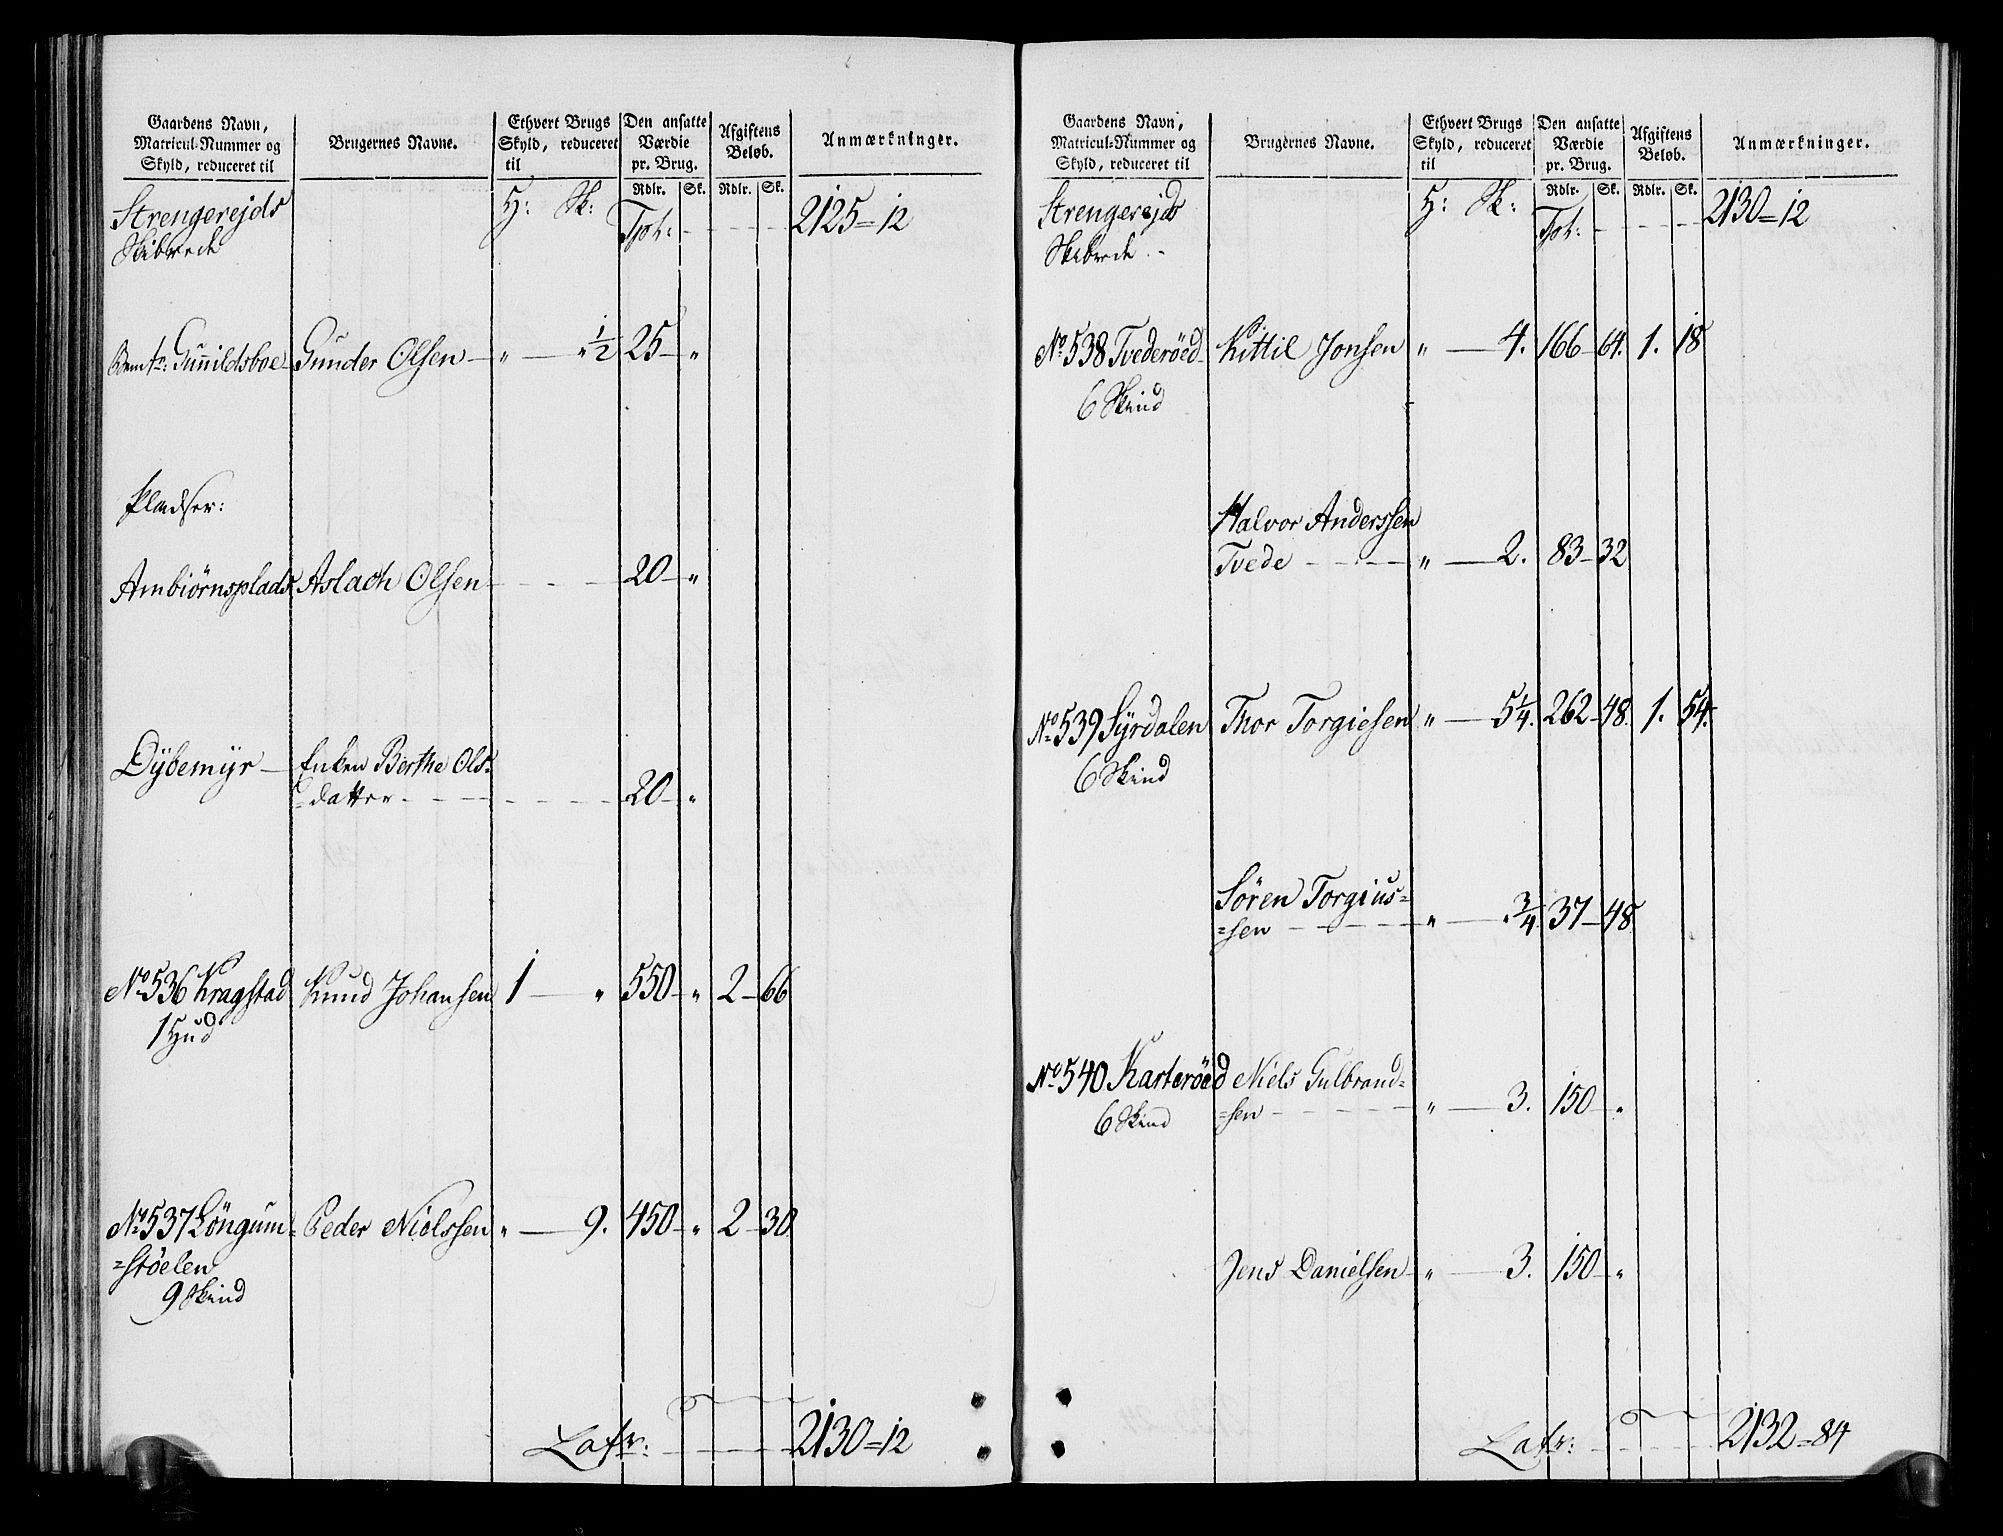 Gaardens Navn,
Matricul-Nummer og
Skyld, reduceret til
Brugernes Navne.
Ethvert Brugs
Skyld, reduceret
til
Den ansatte
Værdie
pr. Brug.
Afgiftens
Beløb.
Anmærkninger.
Rdlr. Sk. Rdlr. Sk.
Strengerejds H: Sk: Tpt: 2125=12
Skibrede
Gunnildsboe Gunder Olsen — „ — „ 1/2 25 — „
Pladser:
Ambiørnsplads Aslach Olsen 20 — „
Dÿbemÿr — Enken Berthe Ols=
=datter 20 — „
No 536 Kragstad Knud Johansen 1 — „ 550 — „ 2 — 66
1 Hud
No 537 Löngum= Peder Nielssen „ — 9. 450 — „ 2 — 30
=støelen
9 Skind
Latr: 2130=12
Gaardens Navn,
Matricul-Nummer og
Skyld, reduceret til
Brugernes Navne.
Ethvert Brugs
Skyld, reduceret
til
Den ansatte
Værdie
pr. Brug.
Afgiftens
Beløb.
Anmærkninger.
Rdlr. Sk. Rdlr. Sk.
Strengerejds H: Sk: Tpt: 2130=12
Skibrede
No 538 Tvederöed Kittil Jonsen „ — 4. 166 — 64. 1. 18
6 Skind
Halvor Anderssen
Tvede „ — 2. 83 — 32
No 539 Sÿrdalen Thor Torgiesen „ — 5 1/4. 262 — 48. 1. 54.
6 Skind
Søren Torgius=
=sen „ — 3/4 37 — 48
No 540 Karteröed Niels Gulbrand=
6 Skind =sen „ — 3. 150 — „
Jens Danielsen „ — 3. 150 — „
Latr: 2132=84